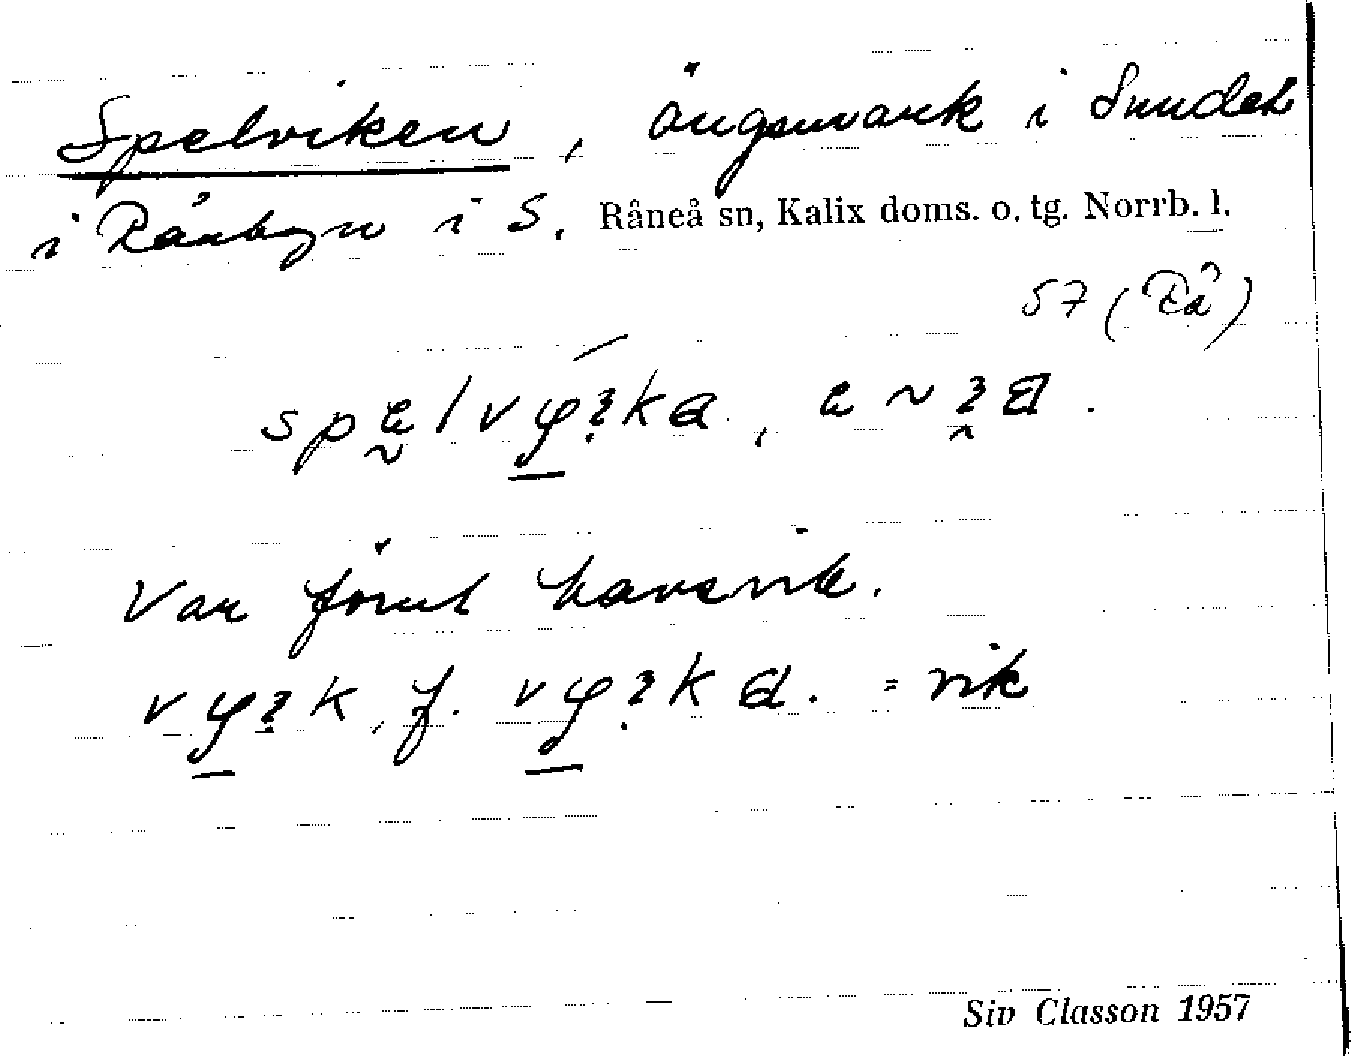 Spelviken, ängsmark i Sundet
i Rånbyn i S. Råneå sn, Kalix doms. o. tg. Norrb. l.
57 (Rå)
Var förut havsvik.
f. = vik
Siv Classon 1957